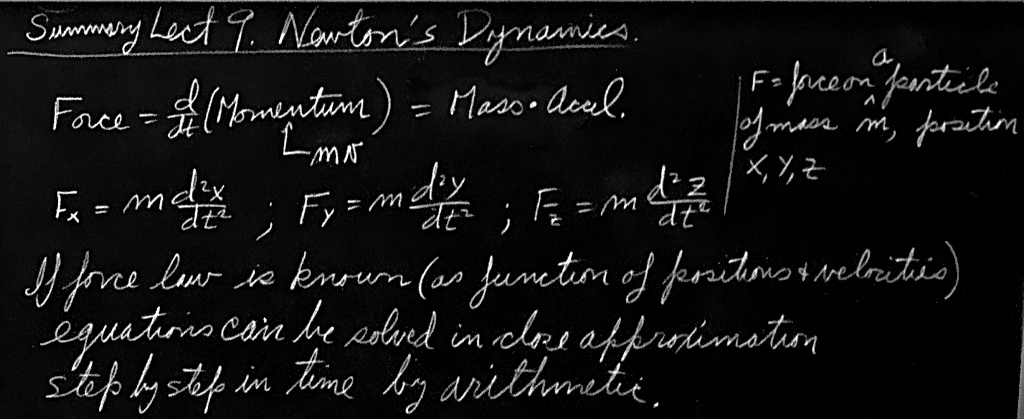 Summary Lect 9. Newton's Dynamics.
Force = d/dt (Momentum) = Mass · Accel.
mv
F = force on a particle
of mass m, position
x, y, z
Fx = m d²x/dt² ; Fy = m d²y/dt² ; Fz = m d²z/dt²
If force law is known (as function of positions & velocities)
equations can be solved in close approximation
step by step in time by arithmetic.